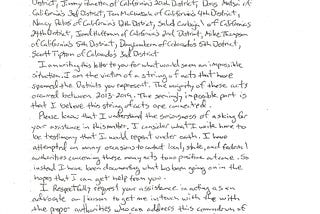 District, Jimmy Panetta of California's 20th District, Doris Matsui of
California's 3rd District, Tom McClintock of California's 4th District,
Nancy Pelosi of California's 12th District, Salud Carbajal of California's
24th District, Jared Huffman of California's 2nd District, Mike Thompson
of California's 5th District, Doug Lamborn of Colorado's 5th District,
Scott Tipton of Colorado's 3rd District
I am writing this letter to you for what would seem an impossible
situation. I am the victim of a string of acts that have
spanned the Districts you represent. The majority of these acts
occurred between 2013-2019. The seemingly impossible part is
that I believe this string of acts are connected.
Please know that I understand the seriousness of asking for
your assistance in this matter. I consider what I write here to
be testimony that I would repeat under oath. I have
attempted on many occasions to contact local, state, and federal
authorities concerning these many acts to no positive outcome. So
instead I have been documenting what has been going on in the
hopes that I can get help from you.
I Respectfully request your assistance in acting as an
advocate or liaison to get me in touch with the with
the proper authorities who can address this conundrum of